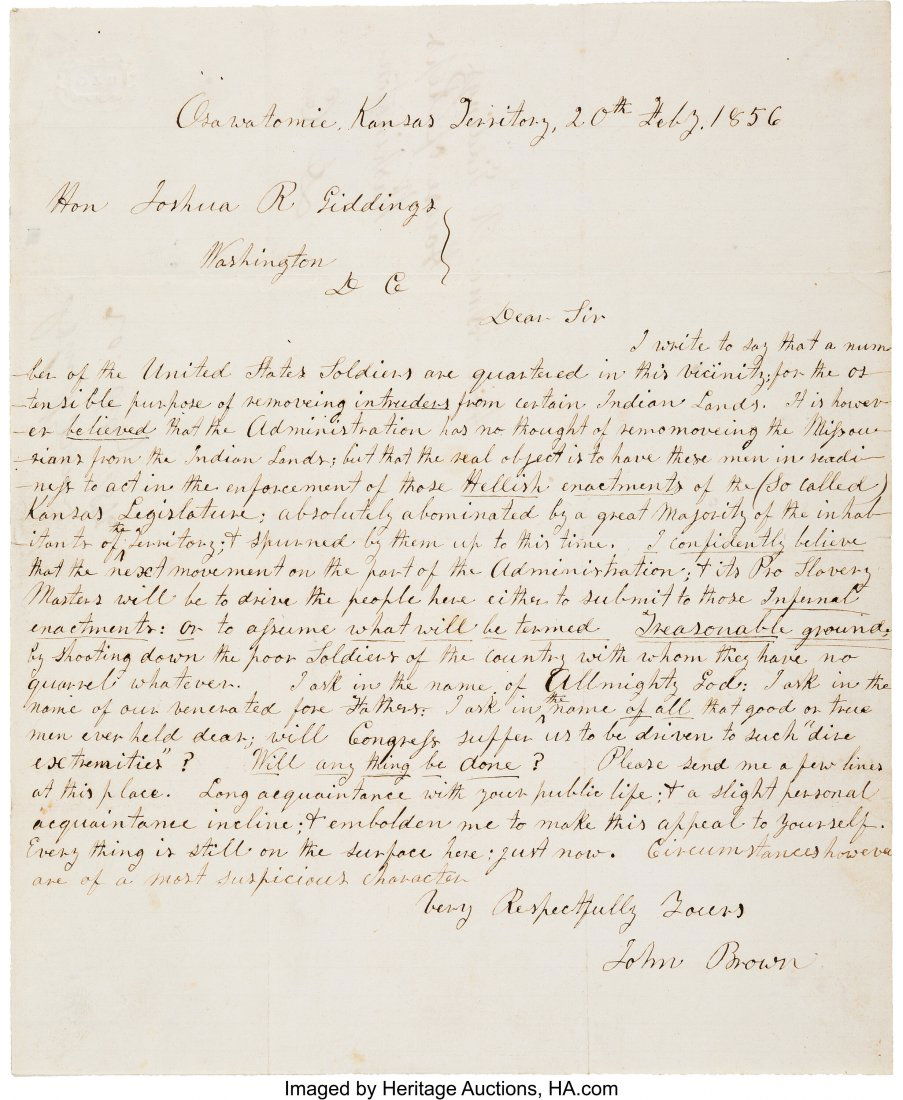 Osawatomie, Kansas Territory, 20th Feby, 1856
Hon Joshua R Giddings
Washington
D C
Dear Sir
I write to say that a num
-ber of the United States Soldiers are quartered in this vicinity; for the os
-tensible purpose of removeing intruders from certain Indian Lands. It is howev-
er believed that the Administration has no thought of remomoveing the Missou-
-rians from the Indian Lands; but that the real object is to have these men in readi-
-ness to act in the enforcement of those Hellish enactments of the (so called)
Kansas Legislature; absolutely abominated by a great Majority of the inhab-
-itants of the Territory; & spurned by them up to this time. I confidently believe
that the next movement on the part of the Administration; & its Pro Slavery
Masters will be to drive the people here either to submit to those Infernal
enactments: or to assume what will be termed Treasonable grounds
by shooting down the poor Soldiers of the country with whom they have no
quarrel whatever. I ask in the name of Allmighty God; I ask in the
name of our venerated fore Fathers; I ask in the name of all that good or true
men ever held dear; will Congress suffer us to be driven to such "dire
extremities"? Will any thing be done? Please send me a few lines
at this place. Long acquaintance with your public life; & a slight personal
acquaintance incline; & embolden me to make this appeal to yourself.
Every thing is still on the surface here; just now. Circumstances however
are of a most suspicious character
Very Respectfully Yours
John Brown
Imaged by Heritage Auctions, HA.com